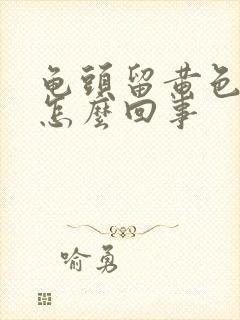 龟頭留黄色
怎麽回事
喻勇